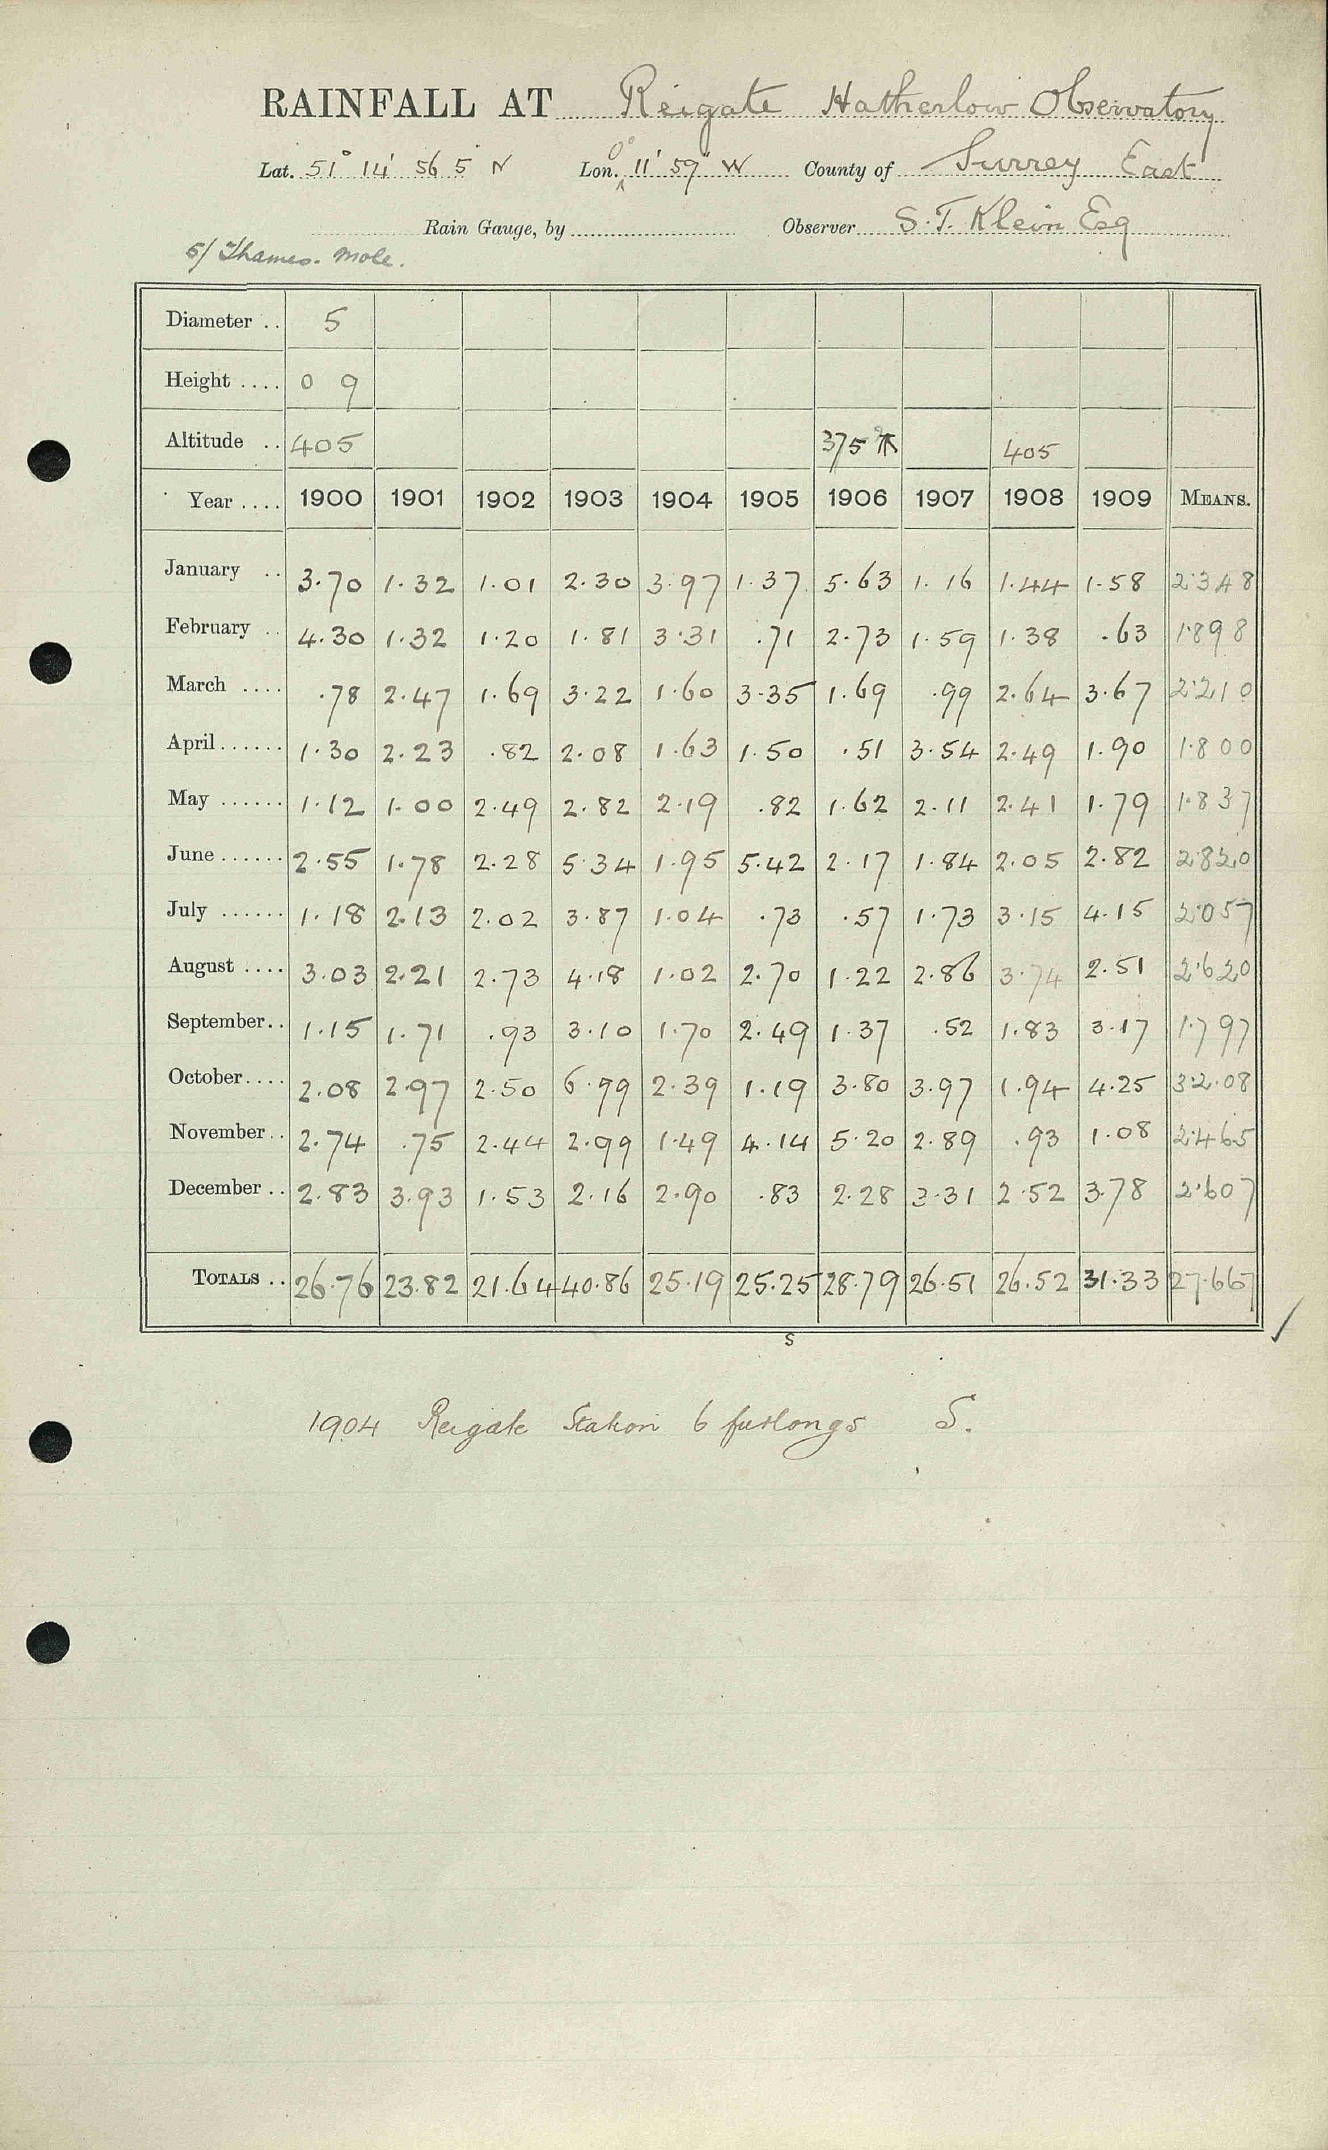 RAINFALL AT Reigate Hatherlow Observatory
Lat. 51° 14' 56 5 N Lon. 0° 11' 59" W County of Surrey East
Rain Gauge, by Observer S. T. Klein Esq
5/ Thames. Mole.
Diameter .. 5
Height .... 0 9
Altitude .. 405 375 405
Year .... 1900 1901 1902 1903 1904 1905 1906 1907 1908 1909 MEANS.
January .. 3.70 1.32 1.01 2.30 3.97 1.37 5.63 1.16 1.44 1.58 2.348
February .. 4.30 1.32 1.20 1.81 3.31 .71 2.73 1.59 1.38 .63 1.898
March .... .78 2.47 1.69 3.22 1.60 3.35 1.69 .99 2.64 3.67 2.210
April...... 1.30 2.23 .82 2.08 1.63 1.50 .51 3.54 2.49 1.90 1.800
May ...... 1.12 1.00 2.49 2.82 2.19 .82 1.62 2.11 2.41 1.79 1.837
June ...... 2.55 1.78 2.28 5.34 1.95 5.42 2.17 1.84 2.05 2.82 2.820
July ...... 1.18 2.13 2.02 3.87 1.04 .73 .57 1.73 3.15 4.15 2.057
August .... 3.03 2.21 2.73 4.18 1.02 2.70 1.22 2.86 3.74 2.51 2.620
September.. 1.15 1.71 .93 3.10 1.70 2.49 1.37 .52 1.83 3.17 1.797
October.... 2.08 2.97 2.50 6.99 2.39 1.19 3.80 3.97 1.94 4.25 32.08
November.. 2.74 .75 2.44 2.99 1.49 4.14 5.20 2.89 .93 1.08 2.465
December .. 2.83 3.93 1.53 2.16 2.90 .83 2.28 3.31 2.52 3.78 2.607
TOTALS .. 26.76 23.82 21.64 40.86 25.19 25.25 28.79 26.51 26.52 31.33 27.667
S
1904 Reigate Station 6 furlongs S.